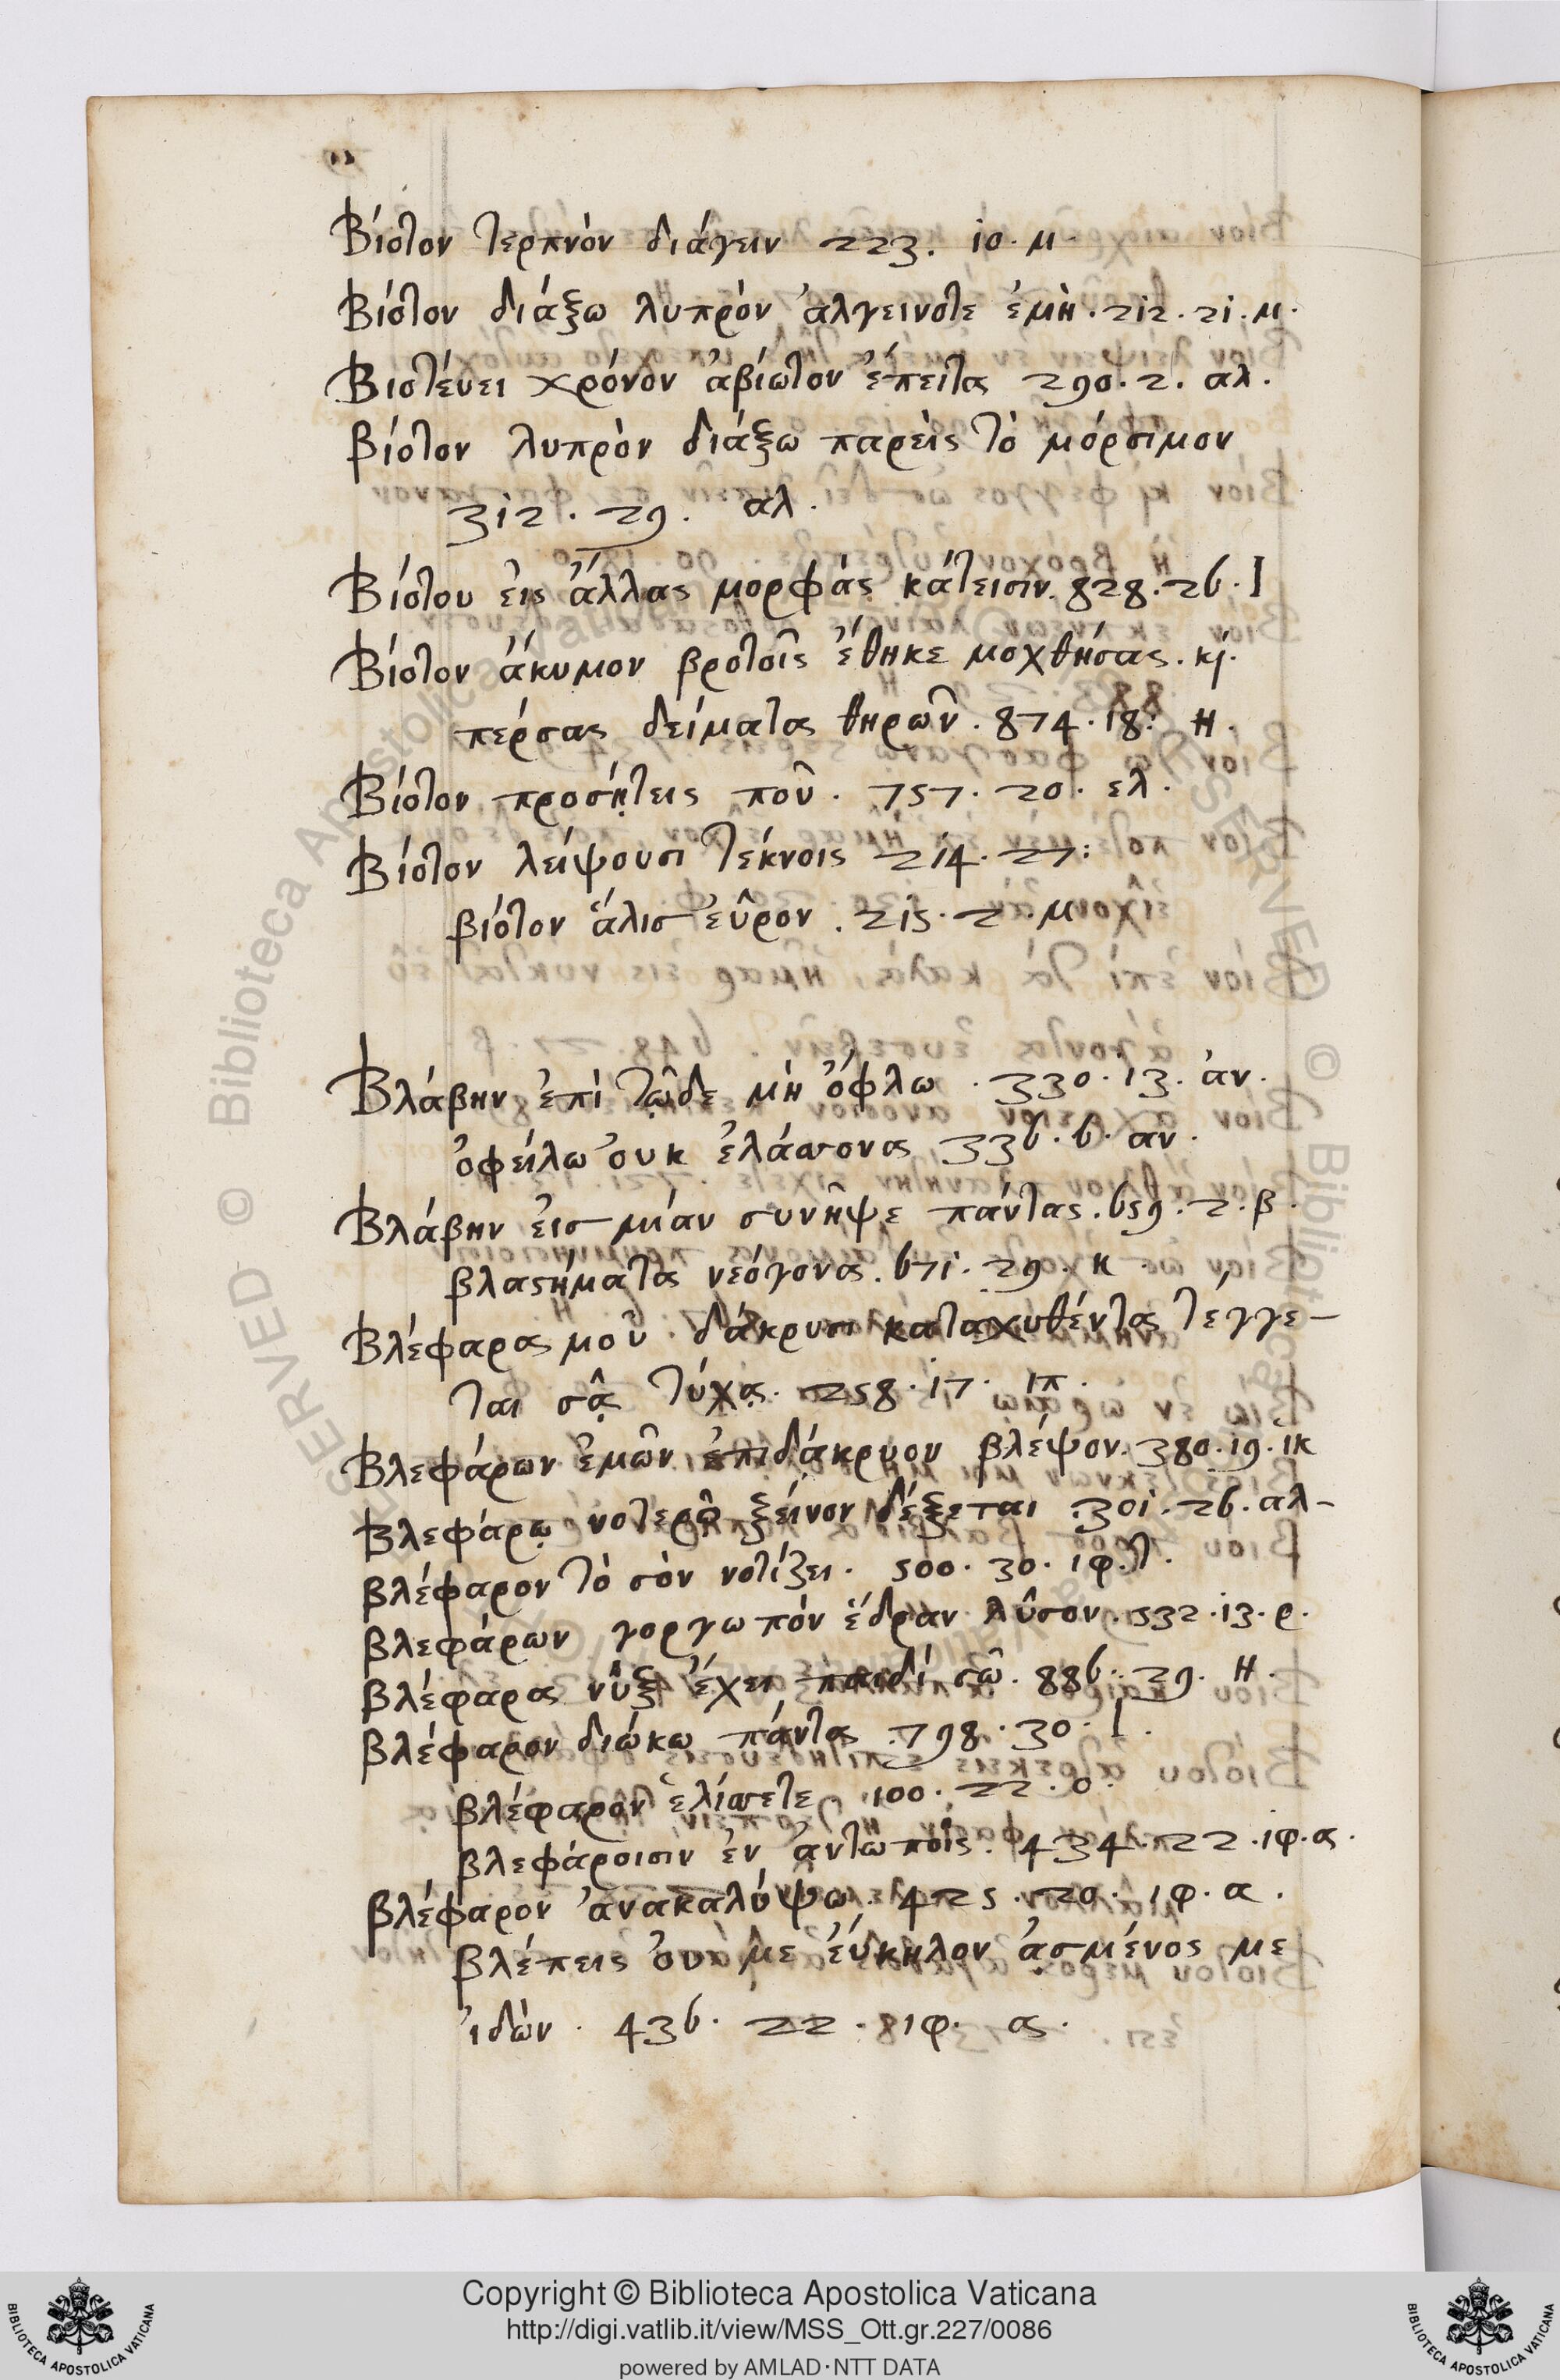 Βίοτον τερπνὸν διάγειν 223. ιο. μ.
Βίοτον διάξω λυπρὸν ἀλγεινότε ἐμὴ. 212. 21. μ.
Βιοτέυει χρόνον ἀβίωτον ἔπειτα 290. 2. αλ.
βίοτον λυπρὸν διάξω παρεὶς τὸ μόρσιμον
312. 29. αλ.
Βίοτου ἐις ἄλλας μορφὰς κάτεισιν. 828. 26. Ι
Βίοτον ἄκυμον βροτοῖς ἔθηκε μοχθήσας. κὶ.
πέρσας δείματα θηρῶν. 874. 18: Η.
88
Βίοτον προσῄτεις ποῦ. 757. 20. ελ.
Βίοτον λείψουσι τέκνοις 214. 27:
βίοτον ἅλισ εὗρον. 215. 2. μ
Βλάβην ἐπὶ τῷδε μὴ ὄφλω. 330. 13. ἀν.
ὀφείλω οὐκ ἐλάσσονα 336. 6. αν.
Βλάβην ἐισ μίαν συνῆψε πάντας. 659. 2. β.
βλαστήματα νεόγονα. 671. 29. κ
Βλέφαρα μοῦ δάκρυσι καταχυθέντα τέγγε-
ται σᾷ τύχᾳ. 258. 17. ιπ.
Βλεφάρων ἐμῶν ἐπιδάκρυον βλέψον. 380. 19. ικ
Βλεφάρῳ νοτερῷ ξεῖνον δέξεται 301. 26. αλ-
βλέφαρον τὸ σὸν νοτίζει. 500. 30. ιφ. τ.
βλεφάρων γοργωπὸν ἕδραν λῦσον. 532. 13. ρ.
βλέφαρα νὺξ ἔχει παιδί σῶ. 886. 29. Η.
βλέφαρον διώκω πάντα 798. 30. Ι.
βλέφαρον ἑλίσσετε 100. 22. ο.
βλεφάροισιν ἐν ἀντωποῖς. 434. 22. ιφ. α.
βλέφαρον ἀνακαλύψω. 425. 20. ιφ. α.
βλέπεις οὐ με εὔκηλον ἀσμένος με
ἰδὼν. 436. 22. ιφ. α.
Copyright © Biblioteca Apostolica Vaticana
http://digi.vatlib.it/view/MSS_Ott.gr.227/0086
powered by AMLAD·NTT DATA
BIBLIOTECA APOSTOLICA VATICANA
BIBLIOTECA APOSTOLICA VATICANA